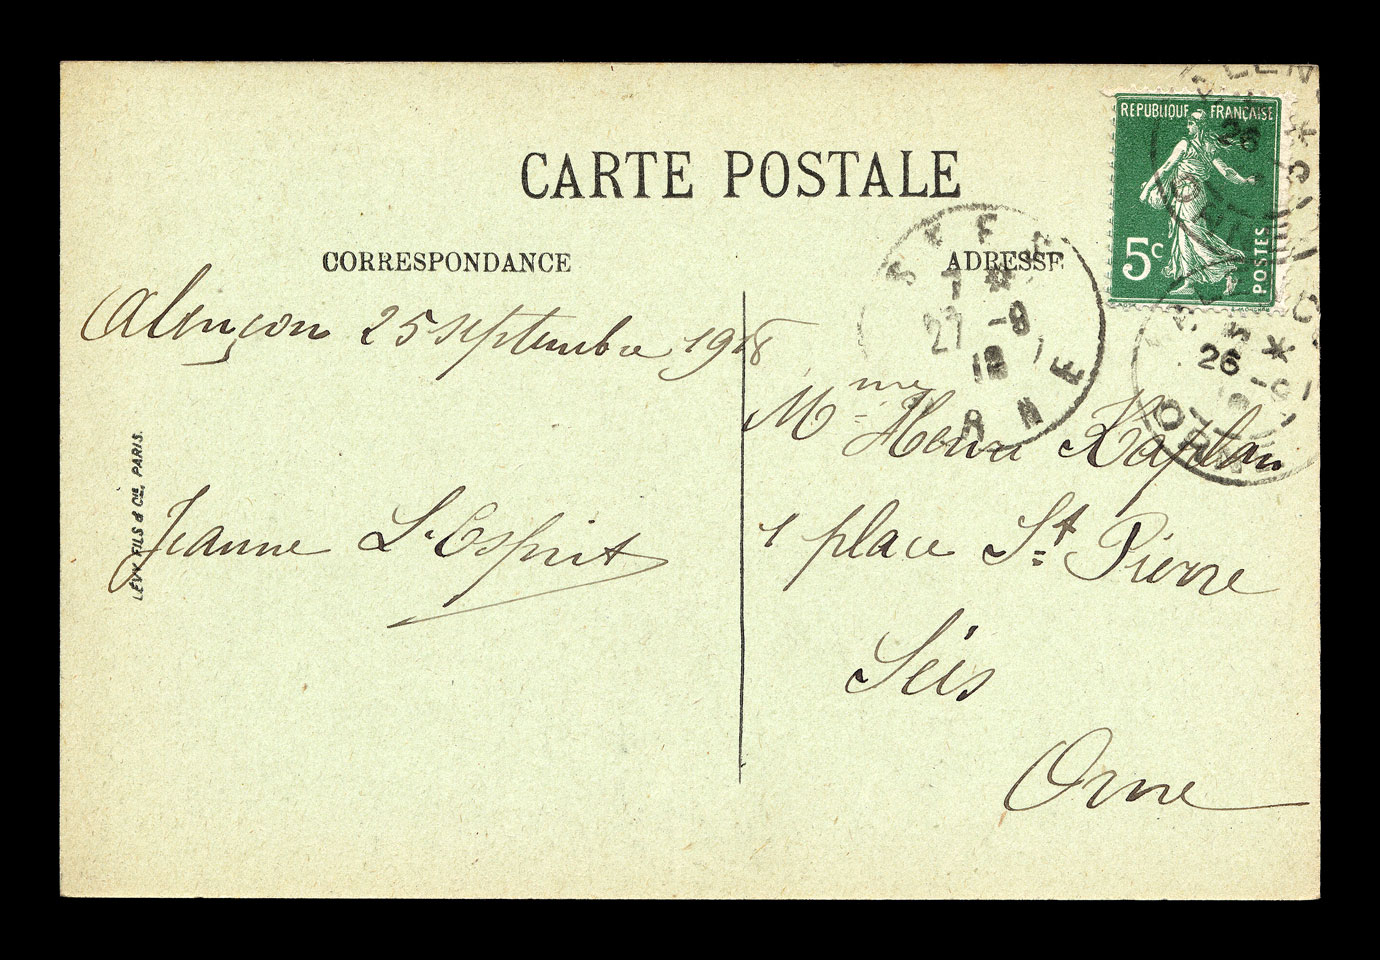 CARTE POSTALE
CORRESPONDANCE
ADRESSE
REPUBLIQUE FRANÇAISE
5c
POSTES
26
27 -9
18
26
ORNE
Alençon 25 septembre 1918
Mme Henri Kaplan
Jeanne L'Esprit
1 place St Pierre
Séis
Orne
LÉVY FILS & Cie, PARIS.